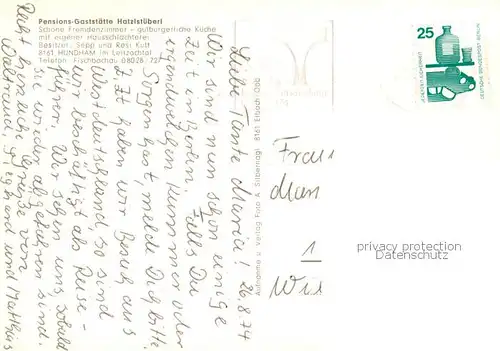 Pensions-Gaststätte Hatzlstüberl
Schöne Fremdenzimmer - gutbürgerliche Küche
mit eigener Hausschlachterei
Besitzer: Sepp und Resi Kutt
8161 HUNDHAM im Leitzachtal
Telefon Fischbachau 08028/727
26.8.74
Liebe Tante Maria!
Wir sind nun schon einige
Zeit in Berlin. Falls Du
irgendwelchen Kummer oder
Sorgen hast, melde Dich bitte
z. Zt. haben wir Besuch aus
Westdeutschland, so sind
wir beschäftigt als Reise-
führer. Wir sehen uns, sobald
sie wieder abgefahren sind.
Recht herzliche Grüße von
Waltraud, Sieghard und Matthias
Aufnahme u. Verlag Foto A. Silbernagl 8161 Elbach/Obb
25
JEDERZEIT SICHERHEIT
DEUTSCHE BUNDESPOST BERLIN
Frau
1
privacy protection
Datenschutz